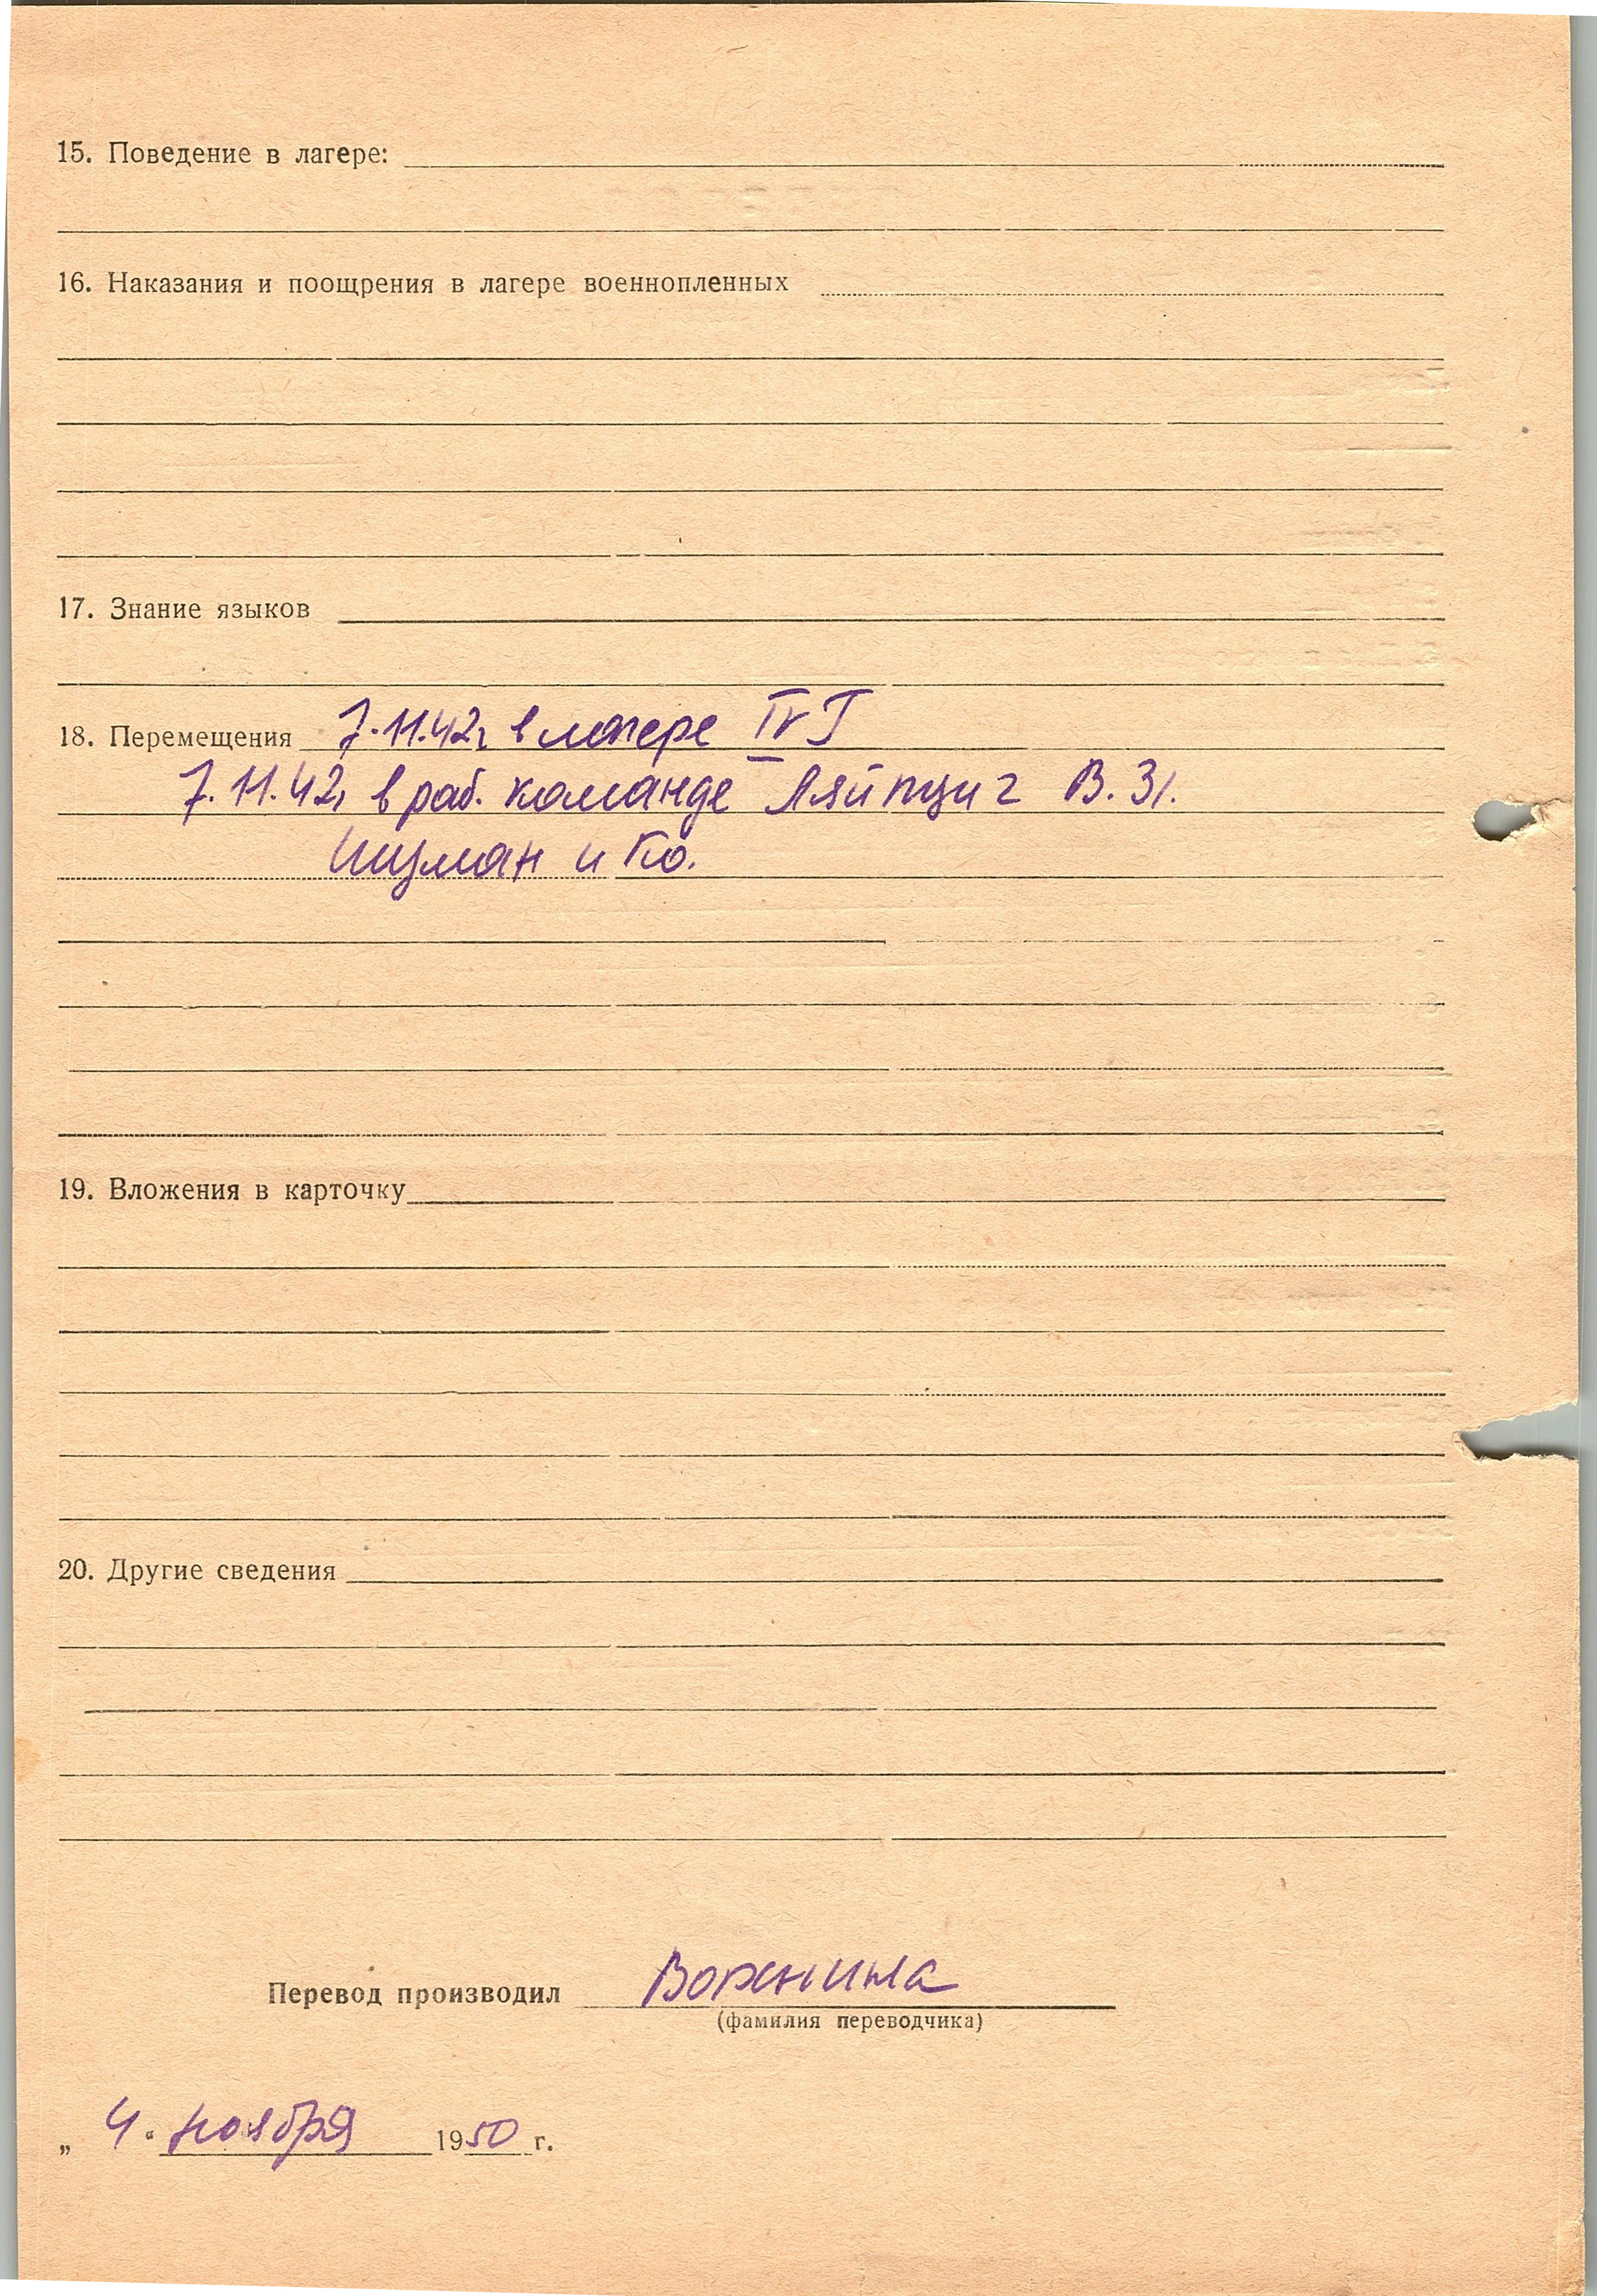 15. Поведение в лагере:
16. Наказания и поощрения в лагере военнопленных
17. Знание языков
18. Перемещения 7.11.42г в лагере IV
7.11.42г в раб. команде Ляйпциг В. 31.
и Ко.
19. Вложения в карточку
20. Другие сведения
Перевод производил
(фамилия переводчика)
„ 4 “ ноября 1950 г.